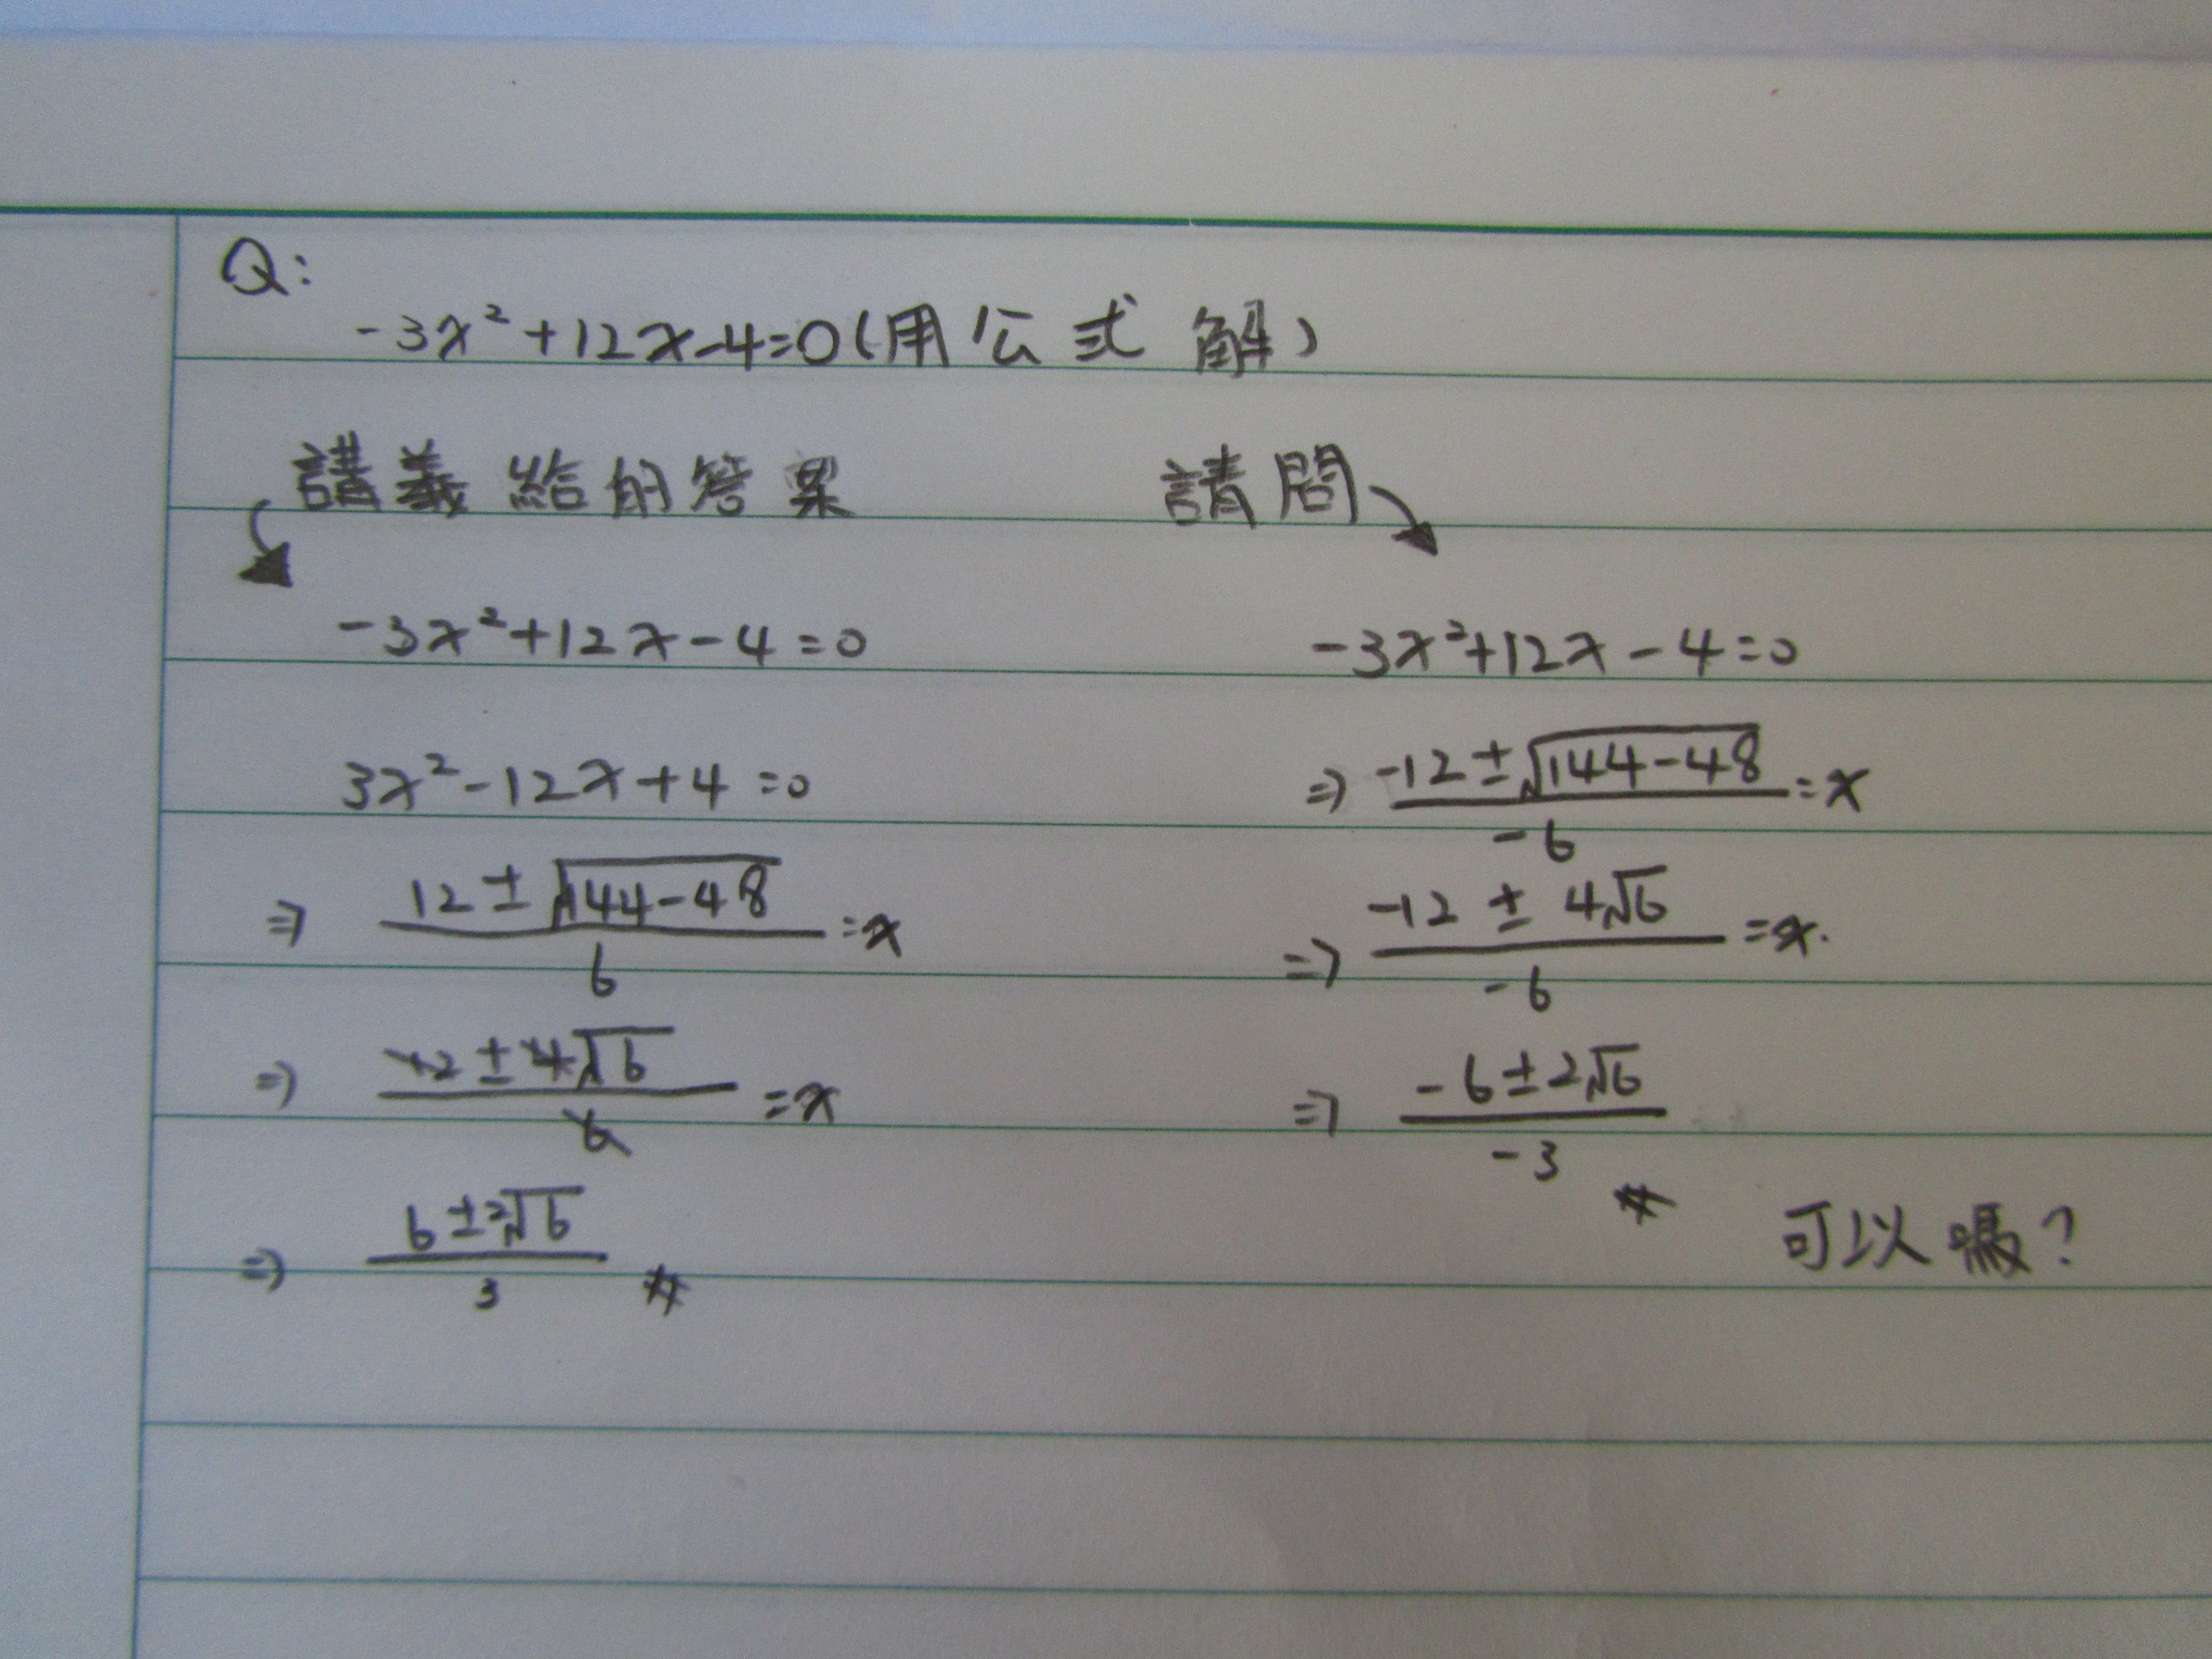 Q:
-3x²+12x-4=0(用公式解)
講義給的答案
-3x²+12x-4=0
3x²-12x+4=0
⇒ (12±√(144-48))/6=x
⇒ (12±4√6)/6=x
⇒ (6±2√6)/3 #
請問
-3x²+12x-4=0
⇒ (-12±√(144-48))/-6=x
⇒ (-12±4√6)/-6=x.
⇒ (-6±2√6)/-3 #
可以嗎?